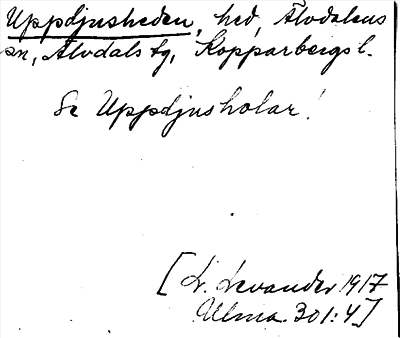 Uppdjusheden, hed, Älvdalens
sn, Älvdals tg, Kopparbergs l.
Se Uppdjusholar!
[L. Levander 1917
Ulma 301:4]